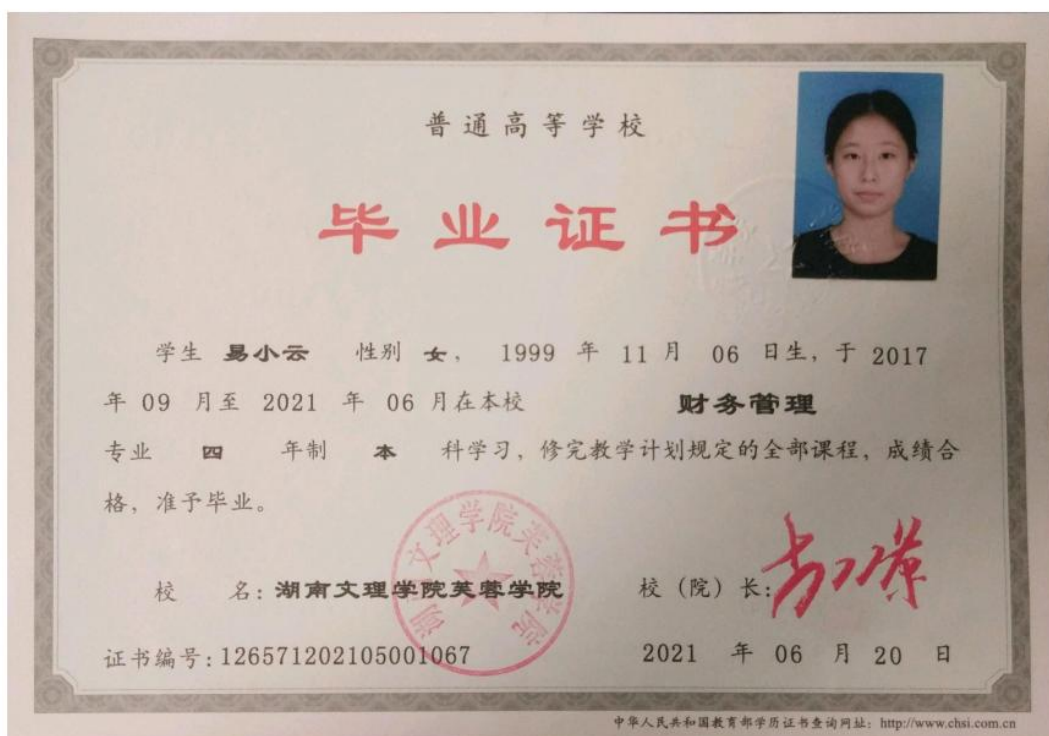 普通高等学校
毕业证书
学生 易小云 性别 女， 1999 年 11 月 06 日生，于 2017
年 09 月至 2021 年 06 月在本校 财务管理
专业 四 年制 本 科学习，修完教学计划规定的全部课程，成绩合
格，准予毕业。
湖南文理学院芙蓉学院
校 名：湖南文理学院芙蓉学院 校（院）长：
证书编号：126571202105001067 2021 年 06 月 20 日
中华人民共和国教育部学历证书查询网址：http://www.chsi.com.cn